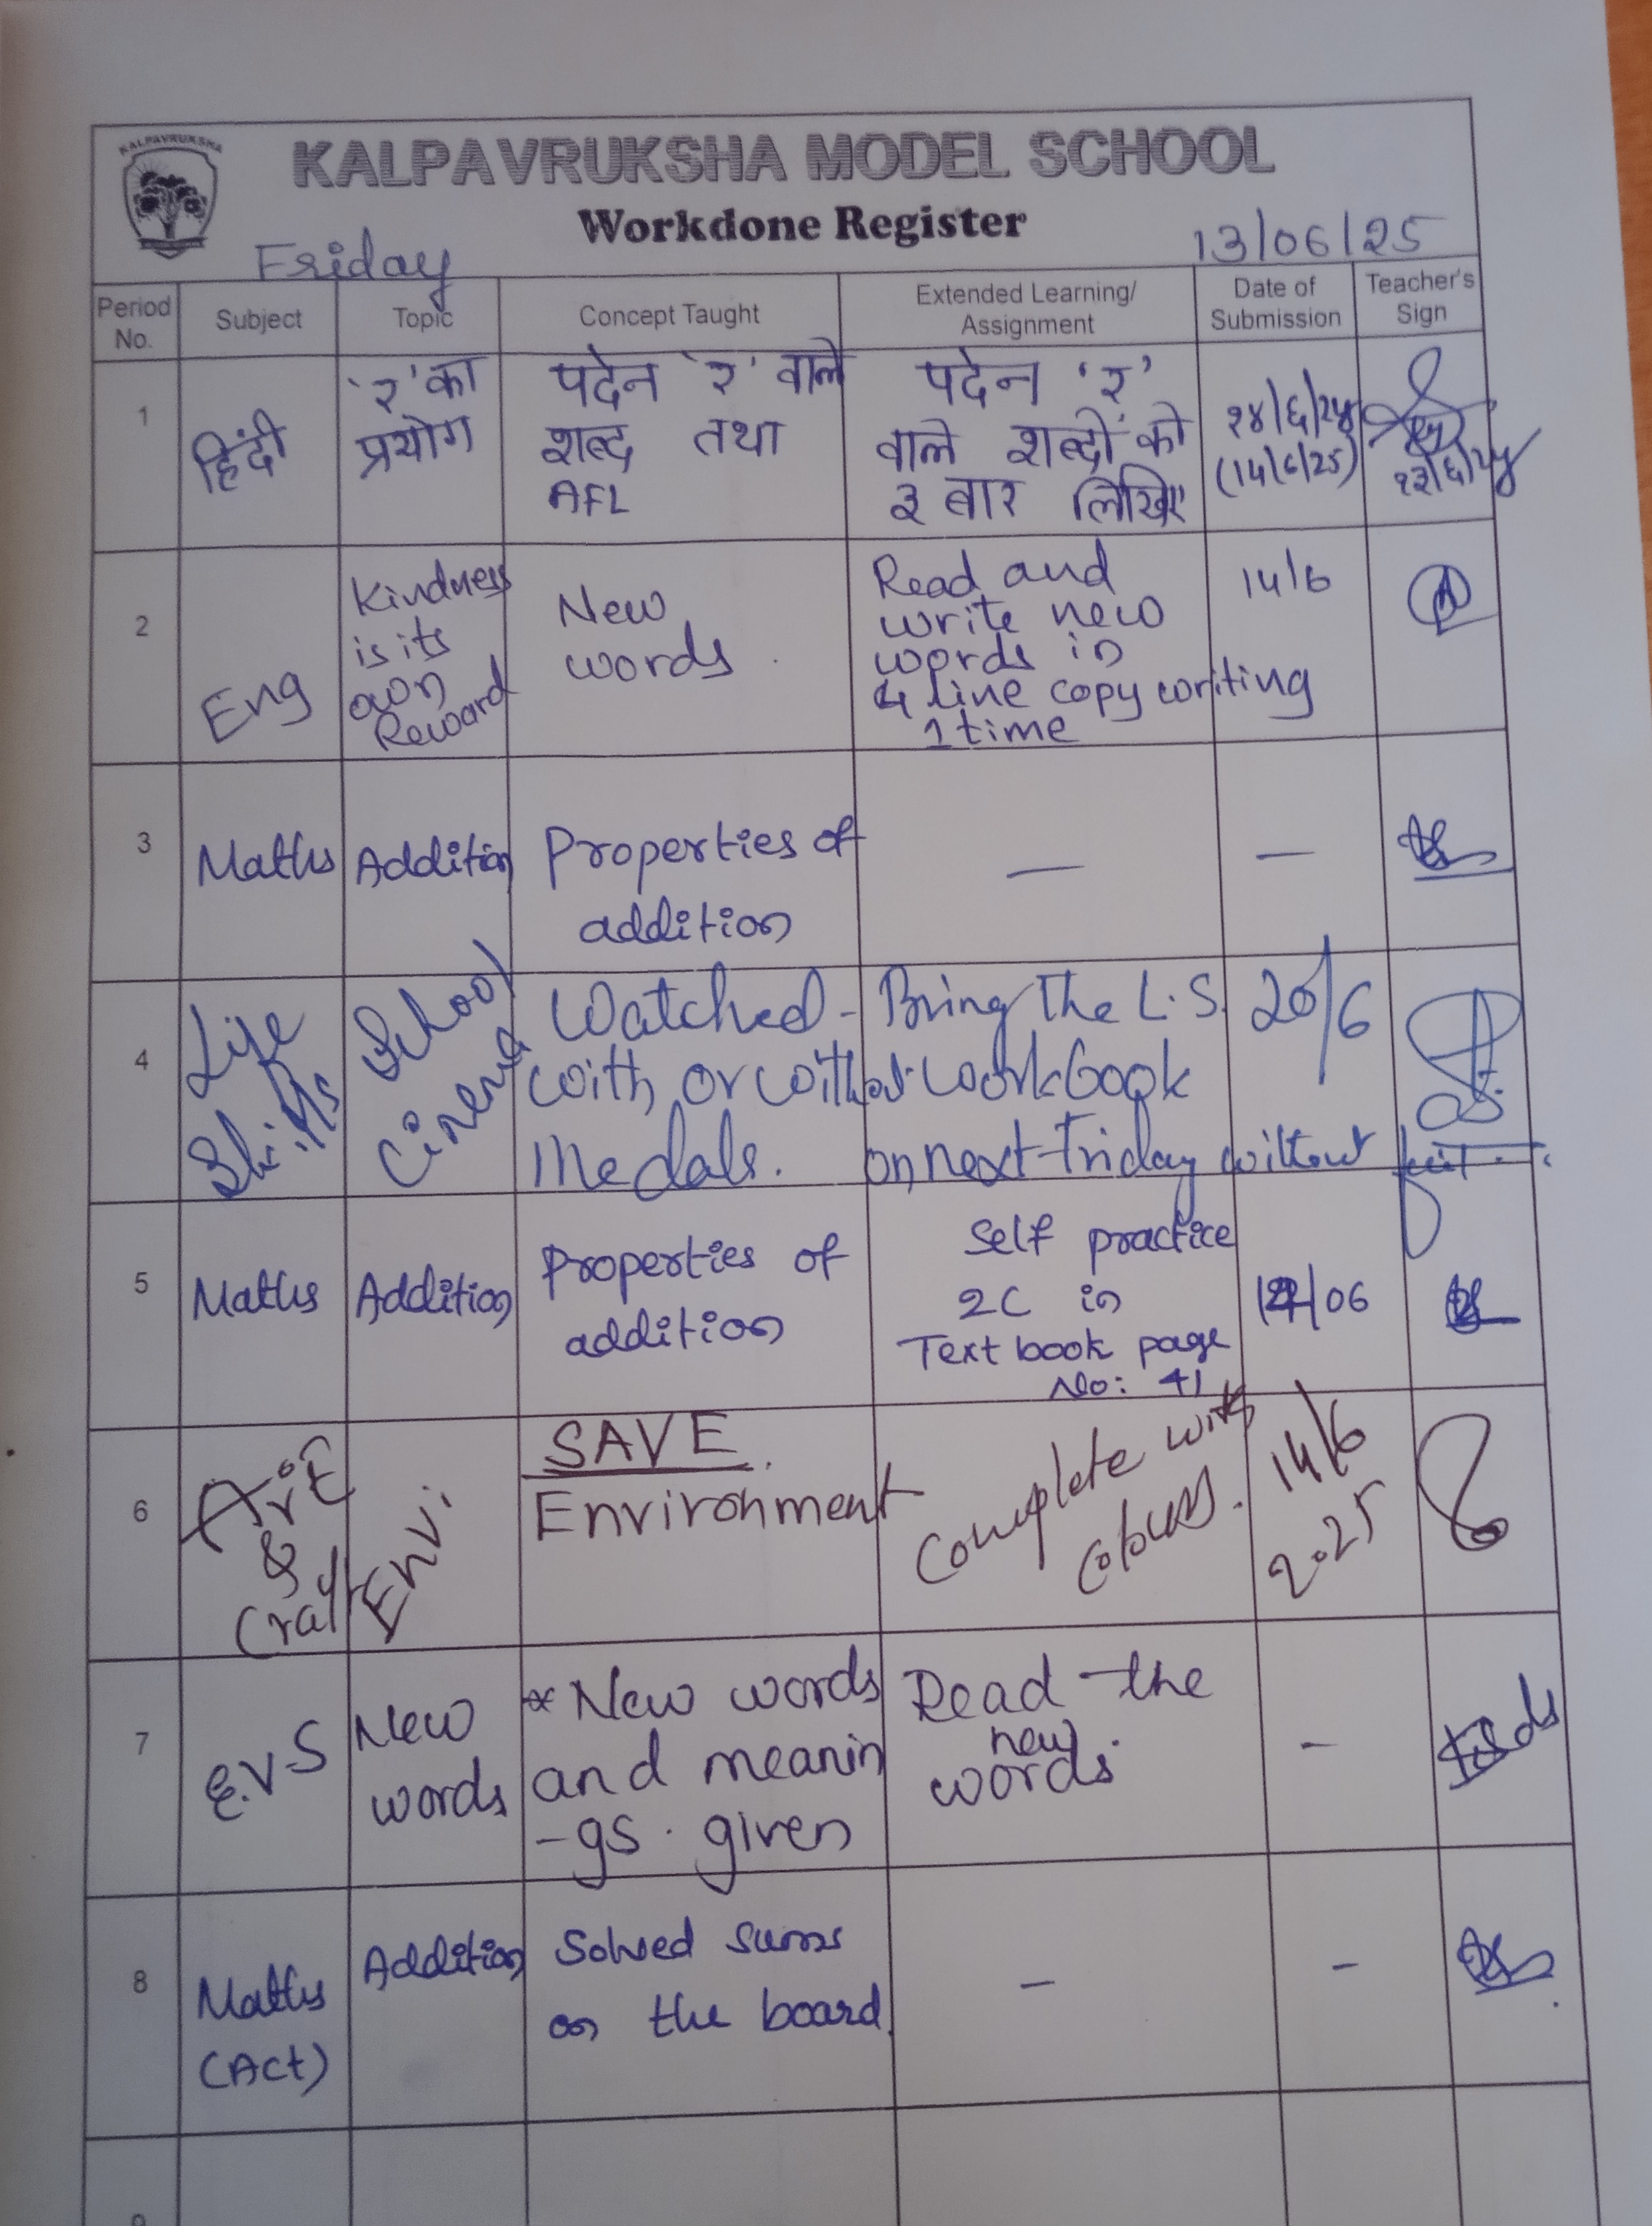 KALPAVRUKSHA
KALPAVRUKSHA MODEL SCHOOL
Workdone Register
Friday
13/06/25
Period No.
Subject
Topic
Concept Taught
Extended Learning/
Assignment
Date of
Submission
Teacher's
Sign
1
हिंदी
'र' का
प्रयोग
पदेन 'र' वाले
शब्द तथा
AFL
पदेन 'र'
वाले शब्दों को
३ बार लिखिए
१४/६/२५
(14/6/25)
१३/६/२५
2
Eng
Kindness
is its
own
Reward
New
words
Read and
write new
words in
4 line copy writing
1 time
14/6
3
Maths
Addition
Properties of
addition
—
—
4
Life
Skills
School
Cinema
Watched -
with or without
Medals.
Bring the L.S.
workbook
on next Friday without
20/6
5
Maths
Addition
Properties of
addition
Self practice
2C in
Text book page
No: 41
/06
6
Art
&
Craft
Envi.
SAVE
Environment
Complete with
colours.
14/6
2025
7
E.V.S
New
words
* New words
and meanin
-gs. given
Read the
new
words.
-
8
Maths
(Act)
Addition
Solved sums
on the board.
—
-
9